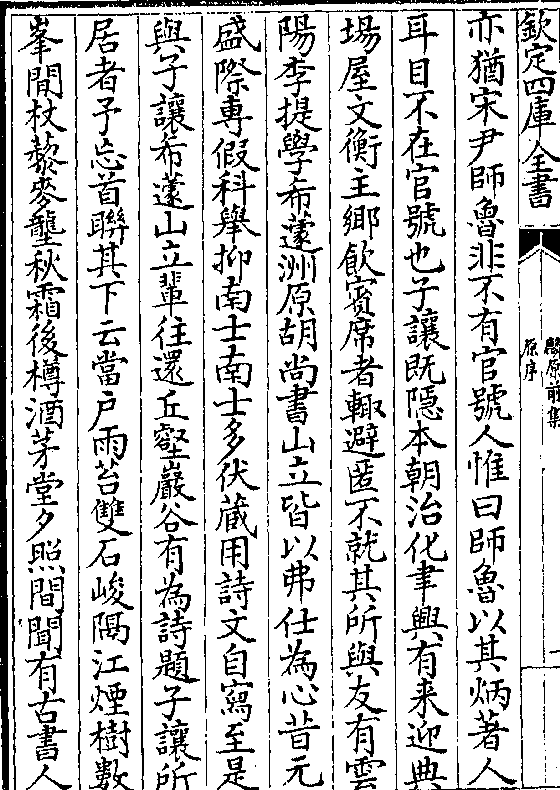 欽定四庫全書
原序
亦猶宋尹師魯非不有官號人惟曰師魯以其炳著人
耳目不在官號也子讓既隱本朝治化聿興有来迎典
場屋文衡主鄉飲賓席者輙避匿不就其所與友有雲
陽李提學希蘧洲原胡尚書山立皆以弗仕為心昔元
盛際專假科舉抑南士南士多伏蔵用詩文自寫至是
與子讓希蘧山立輩往還丘壑巖谷有為詩題子讓所
居者予忘首聯其下云當戶雨苔雙石峻隔江煙樹數
峯間杖藜麥壟秋霜後樽酒茅堂夕照間聞有古書人